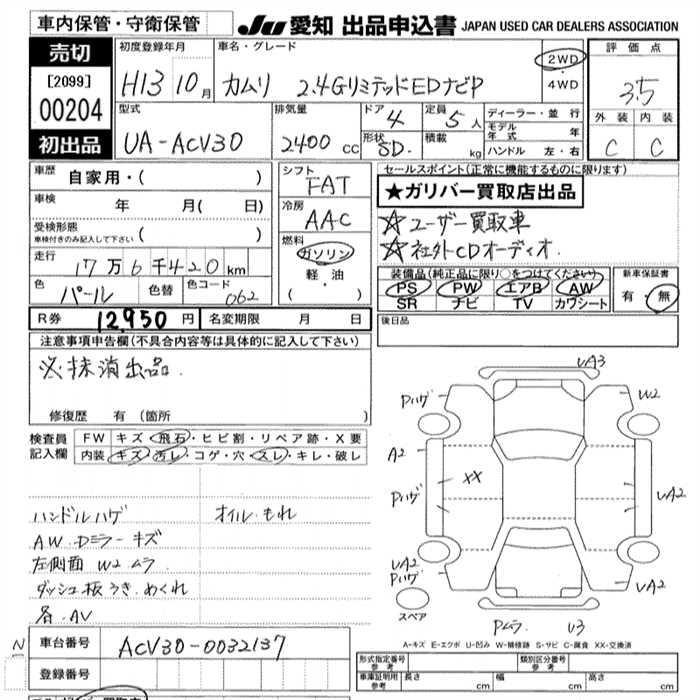 車内保管・守衛保管
JU 愛知 出品申込書 JAPAN USED CAR DEALERS ASSOCIATION
売切
[2099]
00204
初出品
初度登録年月
H13 10月
車名・グレード
カムリ 2.4GリミテッドEDナビP
2WD
・
4WD
評価点
3.5
外装 内装
C C
型式
UA-ACV30
排気量
2400 cc
ドア
4
定員
5人
形状
SD.
積載
kg
ディーラー・並行
モデル年式 年
ハンドル 左・右
車歴
自家用・( )
車検
年 月( 日)
受検形態
車検付きのみ記入して下さい
( )
走行
17万6千420km
色
パール
色替
色コード
062
シフト
FAT
冷房
AAC
燃料
ガソリン
軽・油
( )
セールスポイント(正常に機能するものに限ります)
★ガリバー買取店出品
☆ユーザー買取車
☆社外CDオーディオ.
装備品(純正品に限り○をつけてください)
PS PW エアB AW
SR ナビ TV カワシート
新車保証書
有・無
R券 12,950円
名変期限 月 日
後日品
注意事項申告欄(不具合内容等は具体的に記入して下さい)
※抹消出品.
修復歴 有(箇所 )
検査員
記入欄
FW キズ・飛石・ヒビ割・リペア跡・X要
内装 キズ・汚レ・コゲ・穴・スレ・キレ・破レ
ハンドルハゲ オイルもれ
AW.Dミラーキズ
左側面 W2 ムラ
ダッシュ板うき.めくれ
各.AV
UA3
Pハゲ W2
A2
Pハゲ XX UA2
UA2
Pハゲ UA2
スペア
Pムラ U3
A-キズ E-エクボ U-凹み W-補修跡 S-サビ C-腐食 XX-交換済
N
車台番号 ACV30-0032137
登録番号
形式指定番号
参考
類別区分番号
参考
車庫証明用
参考
長さ cm 幅 cm 高さ cm